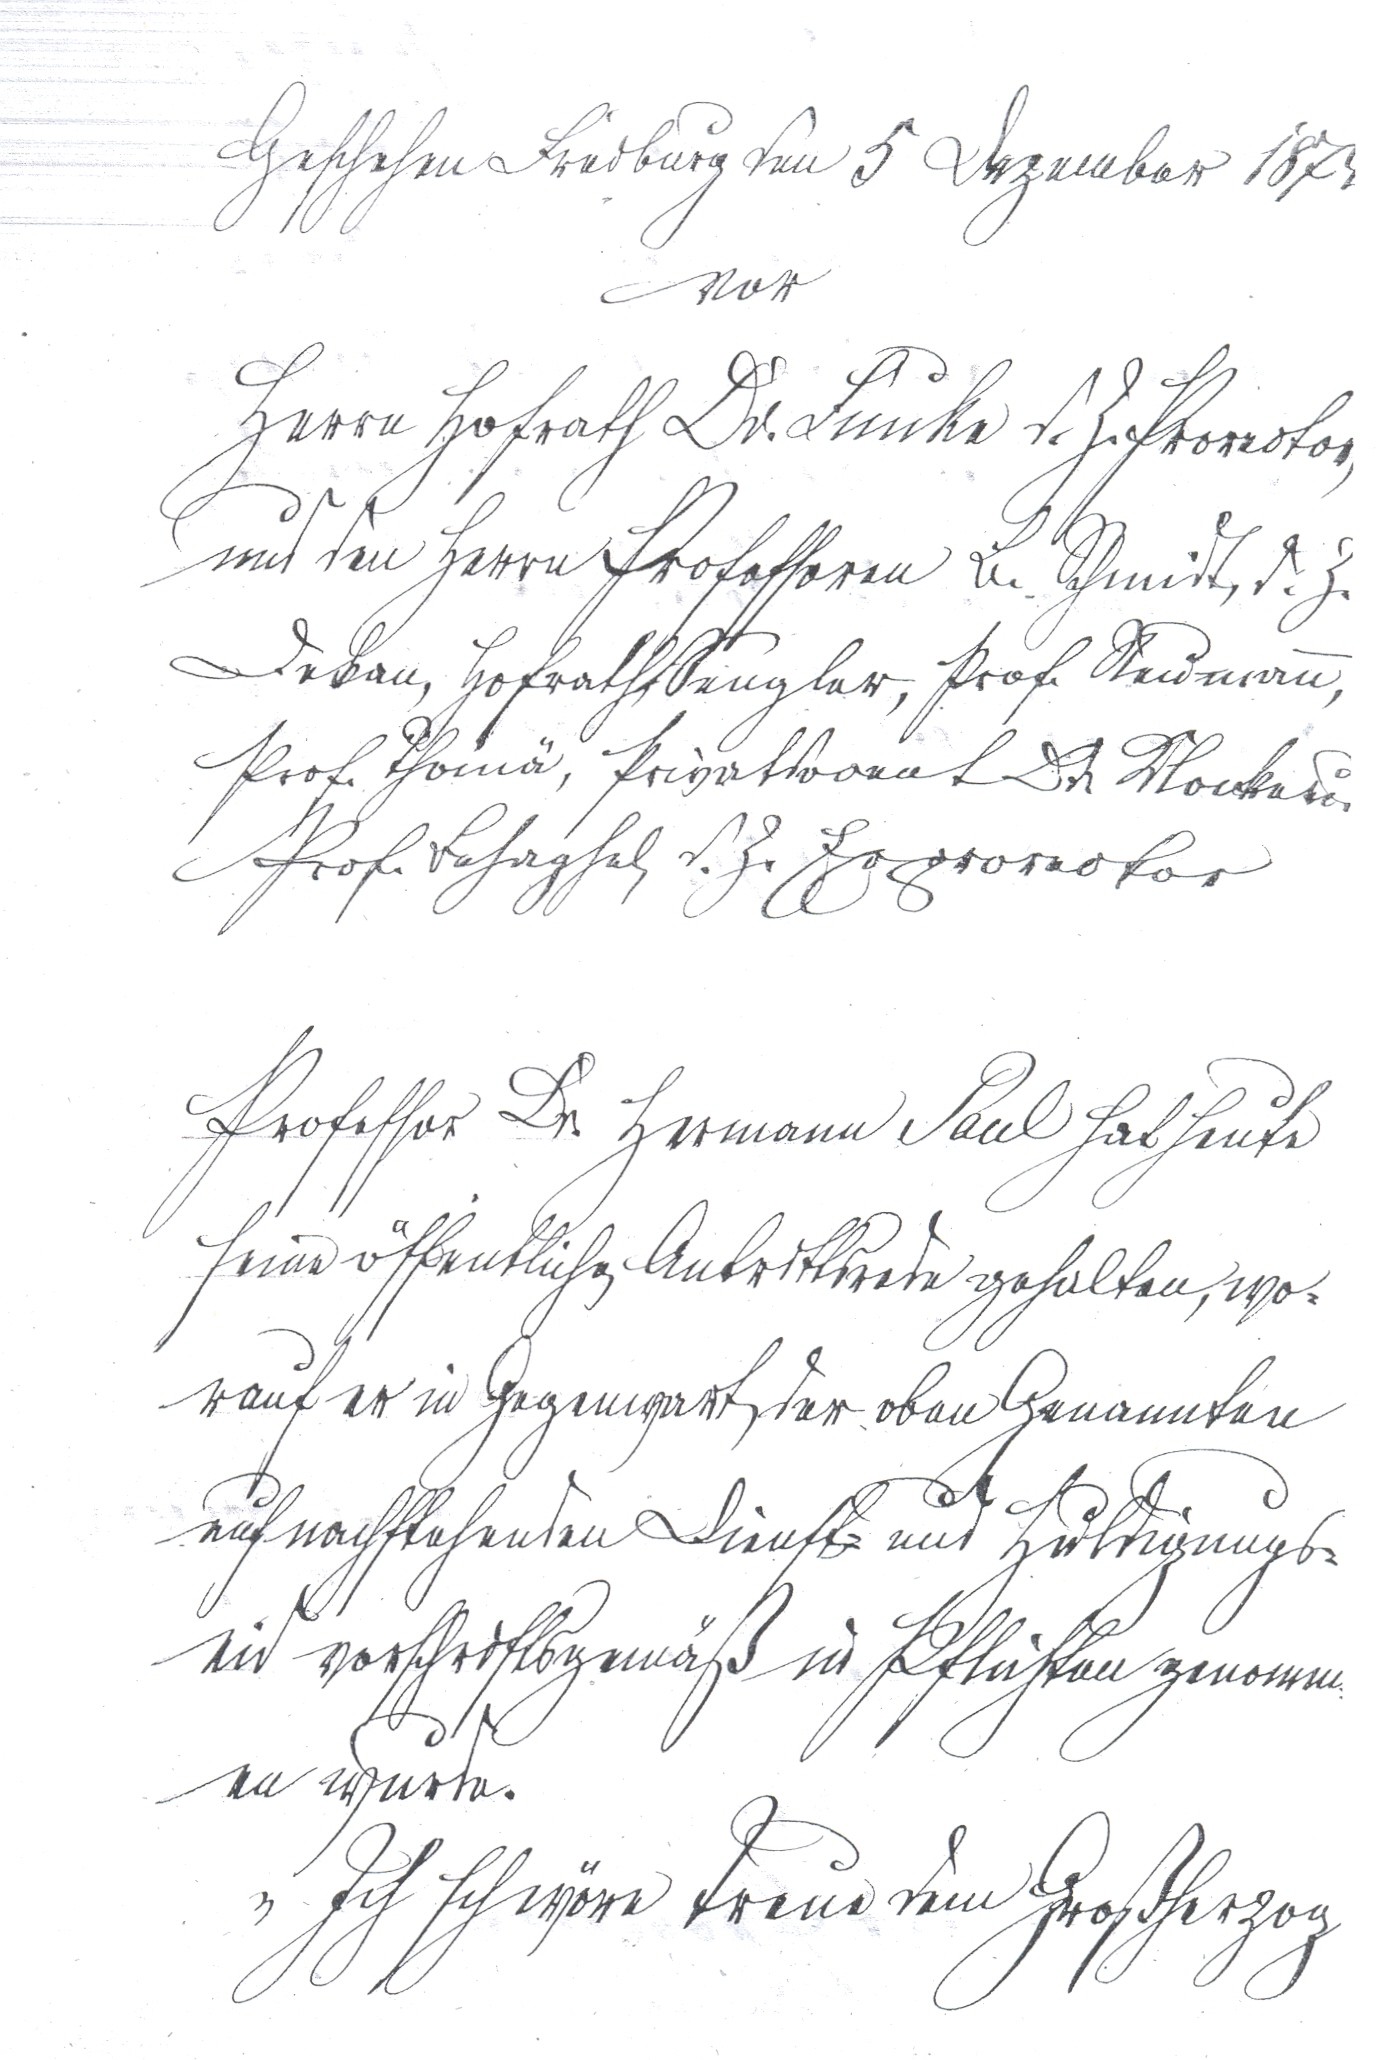 Geschehen Freiburg den 5 Dezember 187
vor
Herrn Hofrath Dr. Funke d. Z. Prorector,
und den Herrn Professoren B. Schmidt, d. Z.
Dekan, Hofrath Sengler, Prof. Neumann,
Prof. Thomä, Privatdocent Dr.
Prof. Behaghel, d. Z. Exprorector
Professor Dr. Hermann Paul hat heute
seine öffentliche Antrittsrede gehalten, wo-
rauf er in Gegenwart der oben Genannten
auf nachstehenden Dienst- und Huldigungs-
eid vorschriftsgemäß in Pflichten genomm-
en wurde.
„Ich schwöre Treue dem Großherzog